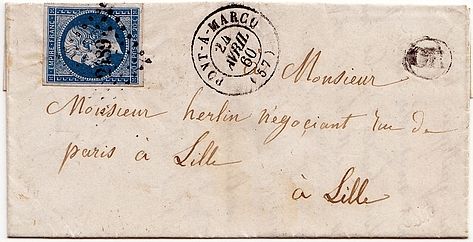 EMPIRE FRANC
PONT-À-MARCQ
24
AVRIL
60
(57)
Monsieur
Monsieur herlin négoçiant rue de
paris à Lille
à Lille